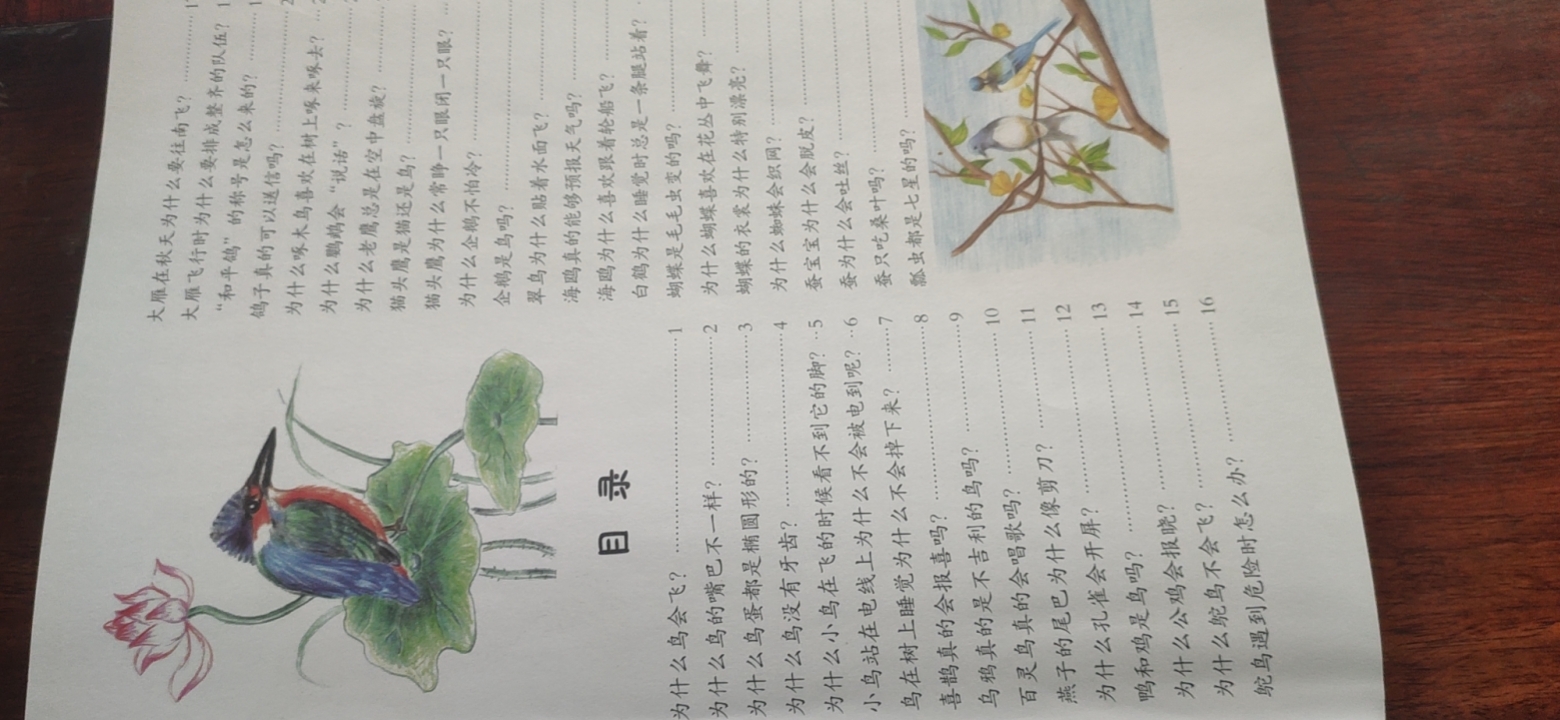 目 录
为什么鸟会飞? 1
为什么鸟的嘴巴不一样? 2
为什么鸟蛋都是椭圆形的? 3
为什么鸟没有牙齿? 4
为什么小鸟在飞的时候看不到它的脚? 5
小鸟站在电线上为什么不会被电到呢? 6
鸟在树上睡觉为什么不会掉下来? 7
喜鹊真的会报喜吗? 8
乌鸦真的是不吉利的鸟吗? 9
百灵鸟真的会唱歌吗? 10
燕子的尾巴为什么像剪刀? 11
为什么孔雀会开屏? 12
鸭和鸡是鸟吗? 13
为什么公鸡会报晓? 14
为什么鸵鸟不会飞? 15
鸵鸟遇到危险时怎么办? 16
大雁在秋天为什么要往南飞?
大雁飞行时为什么要排成整齐的队伍?
“和平鸽”的称号是怎么来的?
鸽子真的可以送信吗?
为什么啄木鸟喜欢在树上啄来啄去?
为什么鹦鹉会“说话”?
为什么老鹰总是在空中盘旋?
猫头鹰是猫还是鸟?
猫头鹰为什么常睁一只眼闭一只眼?
为什么企鹅不怕冷?
企鹅是鸟吗?
翠鸟为什么贴着水面飞?
海鸥真的能够预报天气吗?
海鸥为什么喜欢跟着轮船飞?
白鹤为什么睡觉时总是一条腿站着?
蝴蝶是毛毛虫变的吗?
为什么蝴蝶喜欢在花丛中飞舞?
蝴蝶的衣裳为什么特别漂亮?
为什么蜘蛛会织网?
蚕宝宝为什么会脱皮?
蚕为什么会吐丝?
蚕只吃桑叶吗?
瓢虫都是七星的吗?